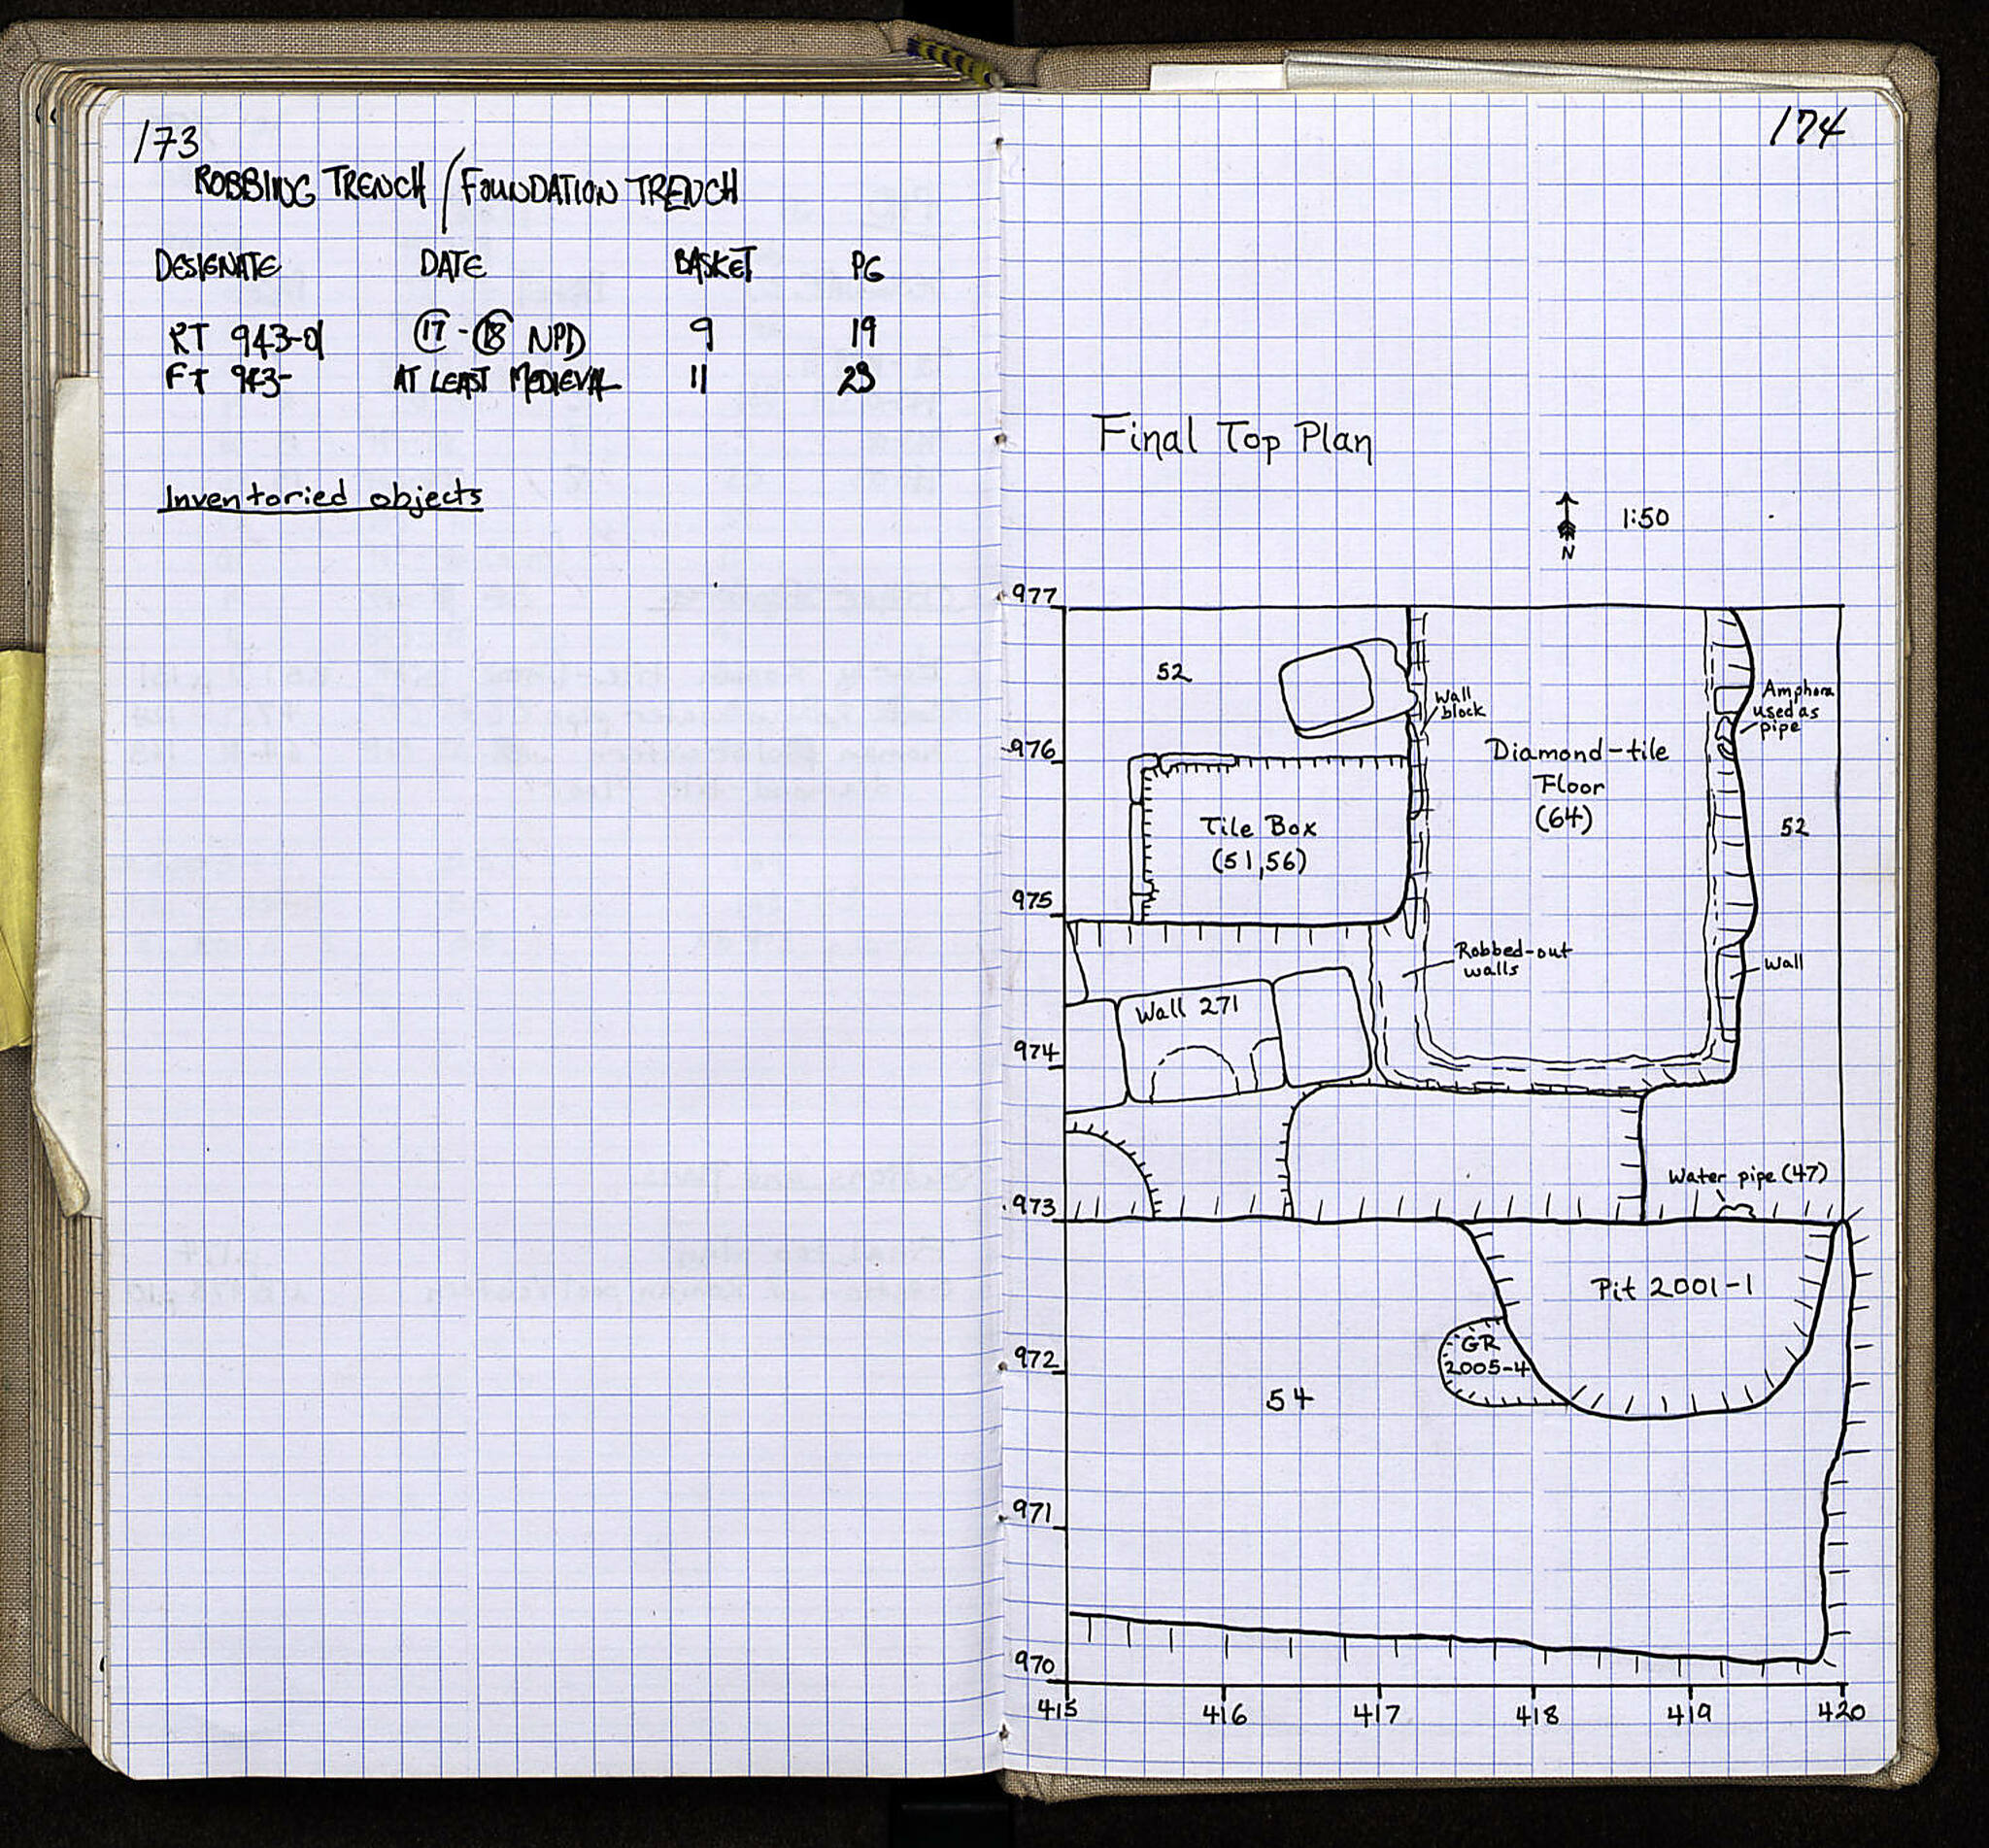 173
ROBBING TRENCH / FOUNDATION TRENCH
DESIGNATE DATE BASKET PG
RT 943-01 17 - 18 NPD 9 19
FT 943- AT LEAST MEDIEVAL 11 23
Inventoried objects
174
Final Top Plan
1:50
N
977
52
Wall
block
Amphora
used as
pipe
976
Diamond-tile
Floor
(64)
Tile Box
(51,56)
52
975
Robbed-out
walls
Wall
Wall 271
974
Water pipe (47)
973
Pit 2001-1
GR
2005-4
972
54
971
970
415 416 417 418 419 420